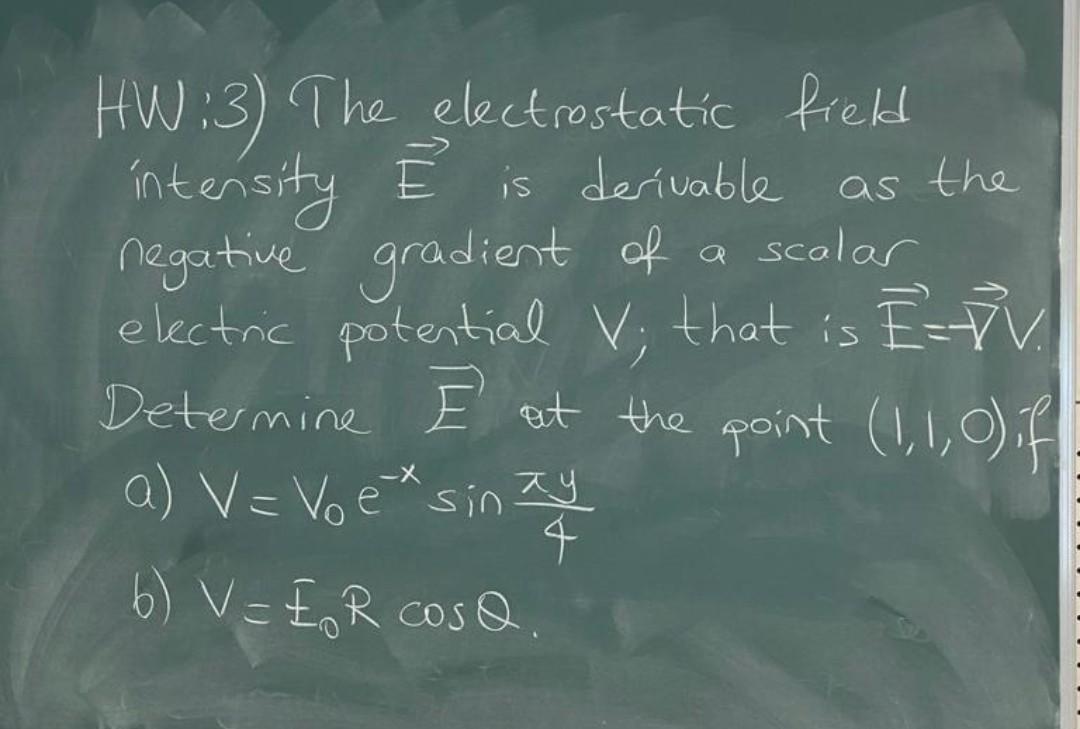 HW:3) The electrostatic field
intensity E⃗ is derivable as the
negative gradient of a scalar
electric potential V; that is E⃗=-∇⃗V.
Determine E⃗ at the point (1,1,0) if
a) V = V₀ e⁻ˣ sin πy/4
b) V = E₀R cosθ.